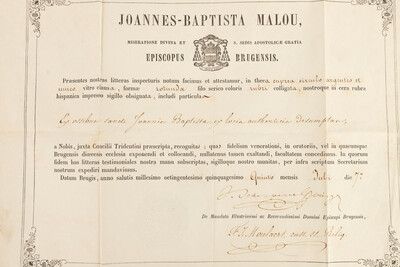 JOANNES-BAPTISTA MALOU,
MISERATIONE DIVINA ET S. SEDIS APOSTOLICÆ GRATIA
EPISCOPUS BRUGENSIS.
Præsentes nostras litteras inspecturis notum facimus et attestamur, in theca cuprea circulo argenteo et
unico vitro clausa, formæ rotunda filo serico coloris rubri colligata, nostroque in cera rubra
hispanica impresso sigillo obsignata, includi particulas
Ex ossibus sancti Joannis Baptistæ, ex locis authenticis desumptas,
a Nobis, juxta Concilii Tridentini præscripta, recognitas; quas fidelium venerationi, in oratoriis, vel in quacumque
Brugensis dioecesis ecclesia exponendi et collocandi, nullatenus tamen exaltandi, facultatem concedimus. In quorum
fidem has litteras testimoniales nostra manu subscriptas, sigilloque nostro munitas, per infra scriptum Secretarium
nostrum expediri mandavimus.
Datum Brugis, anno salutis millesimo octingentesimo quinquagesimo Quinto mensis die 7ª
De Mandato Illustrissimi ac Reverendissimi Domini Episcopi Brugensis,